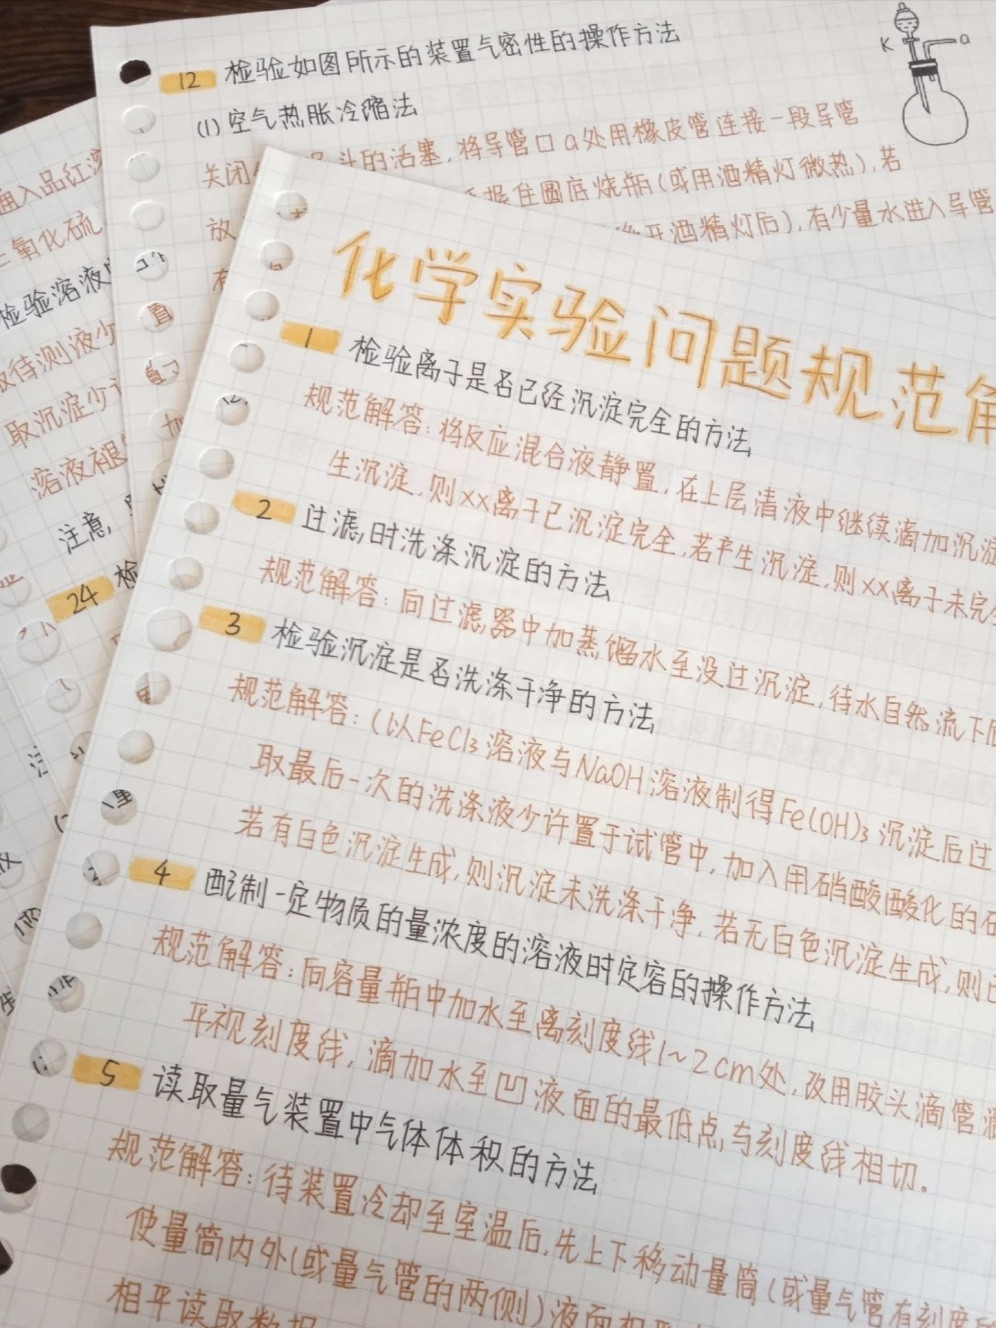 12 检验如图所示的装置气密性的操作方法
(1) 空气热胀冷缩法
关闭 的活塞,将导管口a处用橡皮管连接一段导管
放 握住圆底烧瓶(或用酒精灯微热),若
开酒精灯后),有少量水进入导管
K a
通入品红溶
二氧化硫
检验溶液
待测液少
取沉淀少
溶液褪
注意,
24 检
化学实验问题规范
1 检验离子是否已经沉淀完全的方法
规范解答:将反应混合液静置,在上层清液中继续滴加沉淀
生沉淀,则xx离子已沉淀完全,若产生沉淀,则xx离子未完
2 过滤时洗涤沉淀的方法
规范解答:向过滤器中加蒸馏水至没过沉淀,待水自然流下
3 检验沉淀是否洗涤干净的方法
规范解答:(以FeCl₃溶液与NaOH溶液制得Fe(OH)₃沉淀后过
取最后一次的洗涤液少许置于试管中,加入用硝酸酸化的
若有白色沉淀生成,则沉淀未洗涤干净,若无白色沉淀生成,则
4 配制一定物质的量浓度的溶液时定容的操作方法
规范解答:向容量瓶中加水至离刻度线1~2cm处,改用胶头滴管
平视刻度线,滴加水至凹液面的最低点与刻度线相切。
5 读取量气装置中气体体积的方法
规范解答:待装置冷却至室温后,先上下移动量筒(或量气管有刻度的
使量筒内外(或量气管的两侧)液面相平
相平读取数据